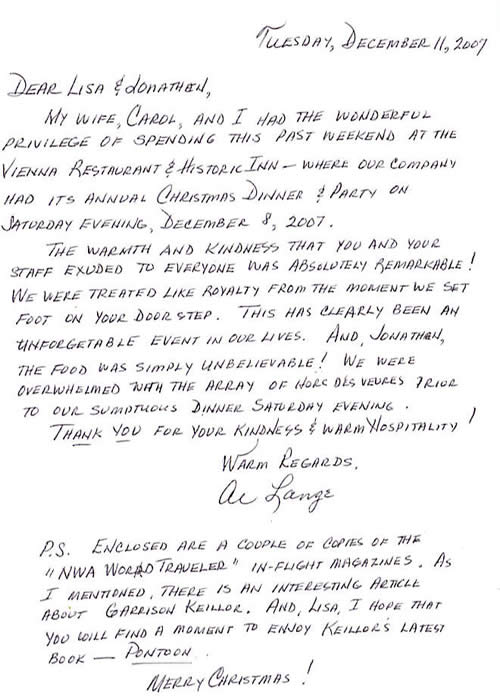 TUESDAY, DECEMBER 11, 2007
DEAR LISA & JONATHAN,
MY WIFE, CAROL, AND I HAD THE WONDERFUL
PRIVILEGE OF SPENDING THIS PAST WEEKEND AT THE
VIENNA RESTAURANT & HISTORIC INN — WHERE OUR COMPANY
HAD ITS ANNUAL CHRISTMAS DINNER & PARTY ON
SATURDAY EVENING, DECEMBER 8, 2007.
THE WARMTH AND KINDNESS THAT YOU AND YOUR
STAFF EXUDED TO EVERYONE WAS ABSOLUTELY REMARKABLE!
WE WERE TREATED LIKE ROYALTY FROM THE MOMENT WE SET
FOOT ON YOUR DOOR STEP. THIS HAS CLEARLY BEEN AN
UNFORGETABLE EVENT IN OUR LIVES. AND, JONATHAN,
THE FOOD WAS SIMPLY UNBELIEVABLE! WE WERE
OVERWHELMED WITH THE ARRAY OF HORS DES VEURES PRIOR
TO OUR SUMPTUOUS DINNER SATURDAY EVENING.
THANK YOU FOR YOUR KINDNESS & WARM HOSPITALITY!
WARM REGARDS,
Al Lange
P.S. ENCLOSED ARE A COUPLE OF COPIES OF THE
"NWA WORLD TRAVELER" IN-FLIGHT MAGAZINES. AS
I MENTIONED, THERE IS AN INTERESTING ARTICLE
ABOUT GARRISON KEILLOR. AND, LISA, I HOPE THAT
YOU WILL FIND A MOMENT TO ENJOY KEILLOR'S LATEST
BOOK — PONTOON.
MERRY CHRISTMAS!